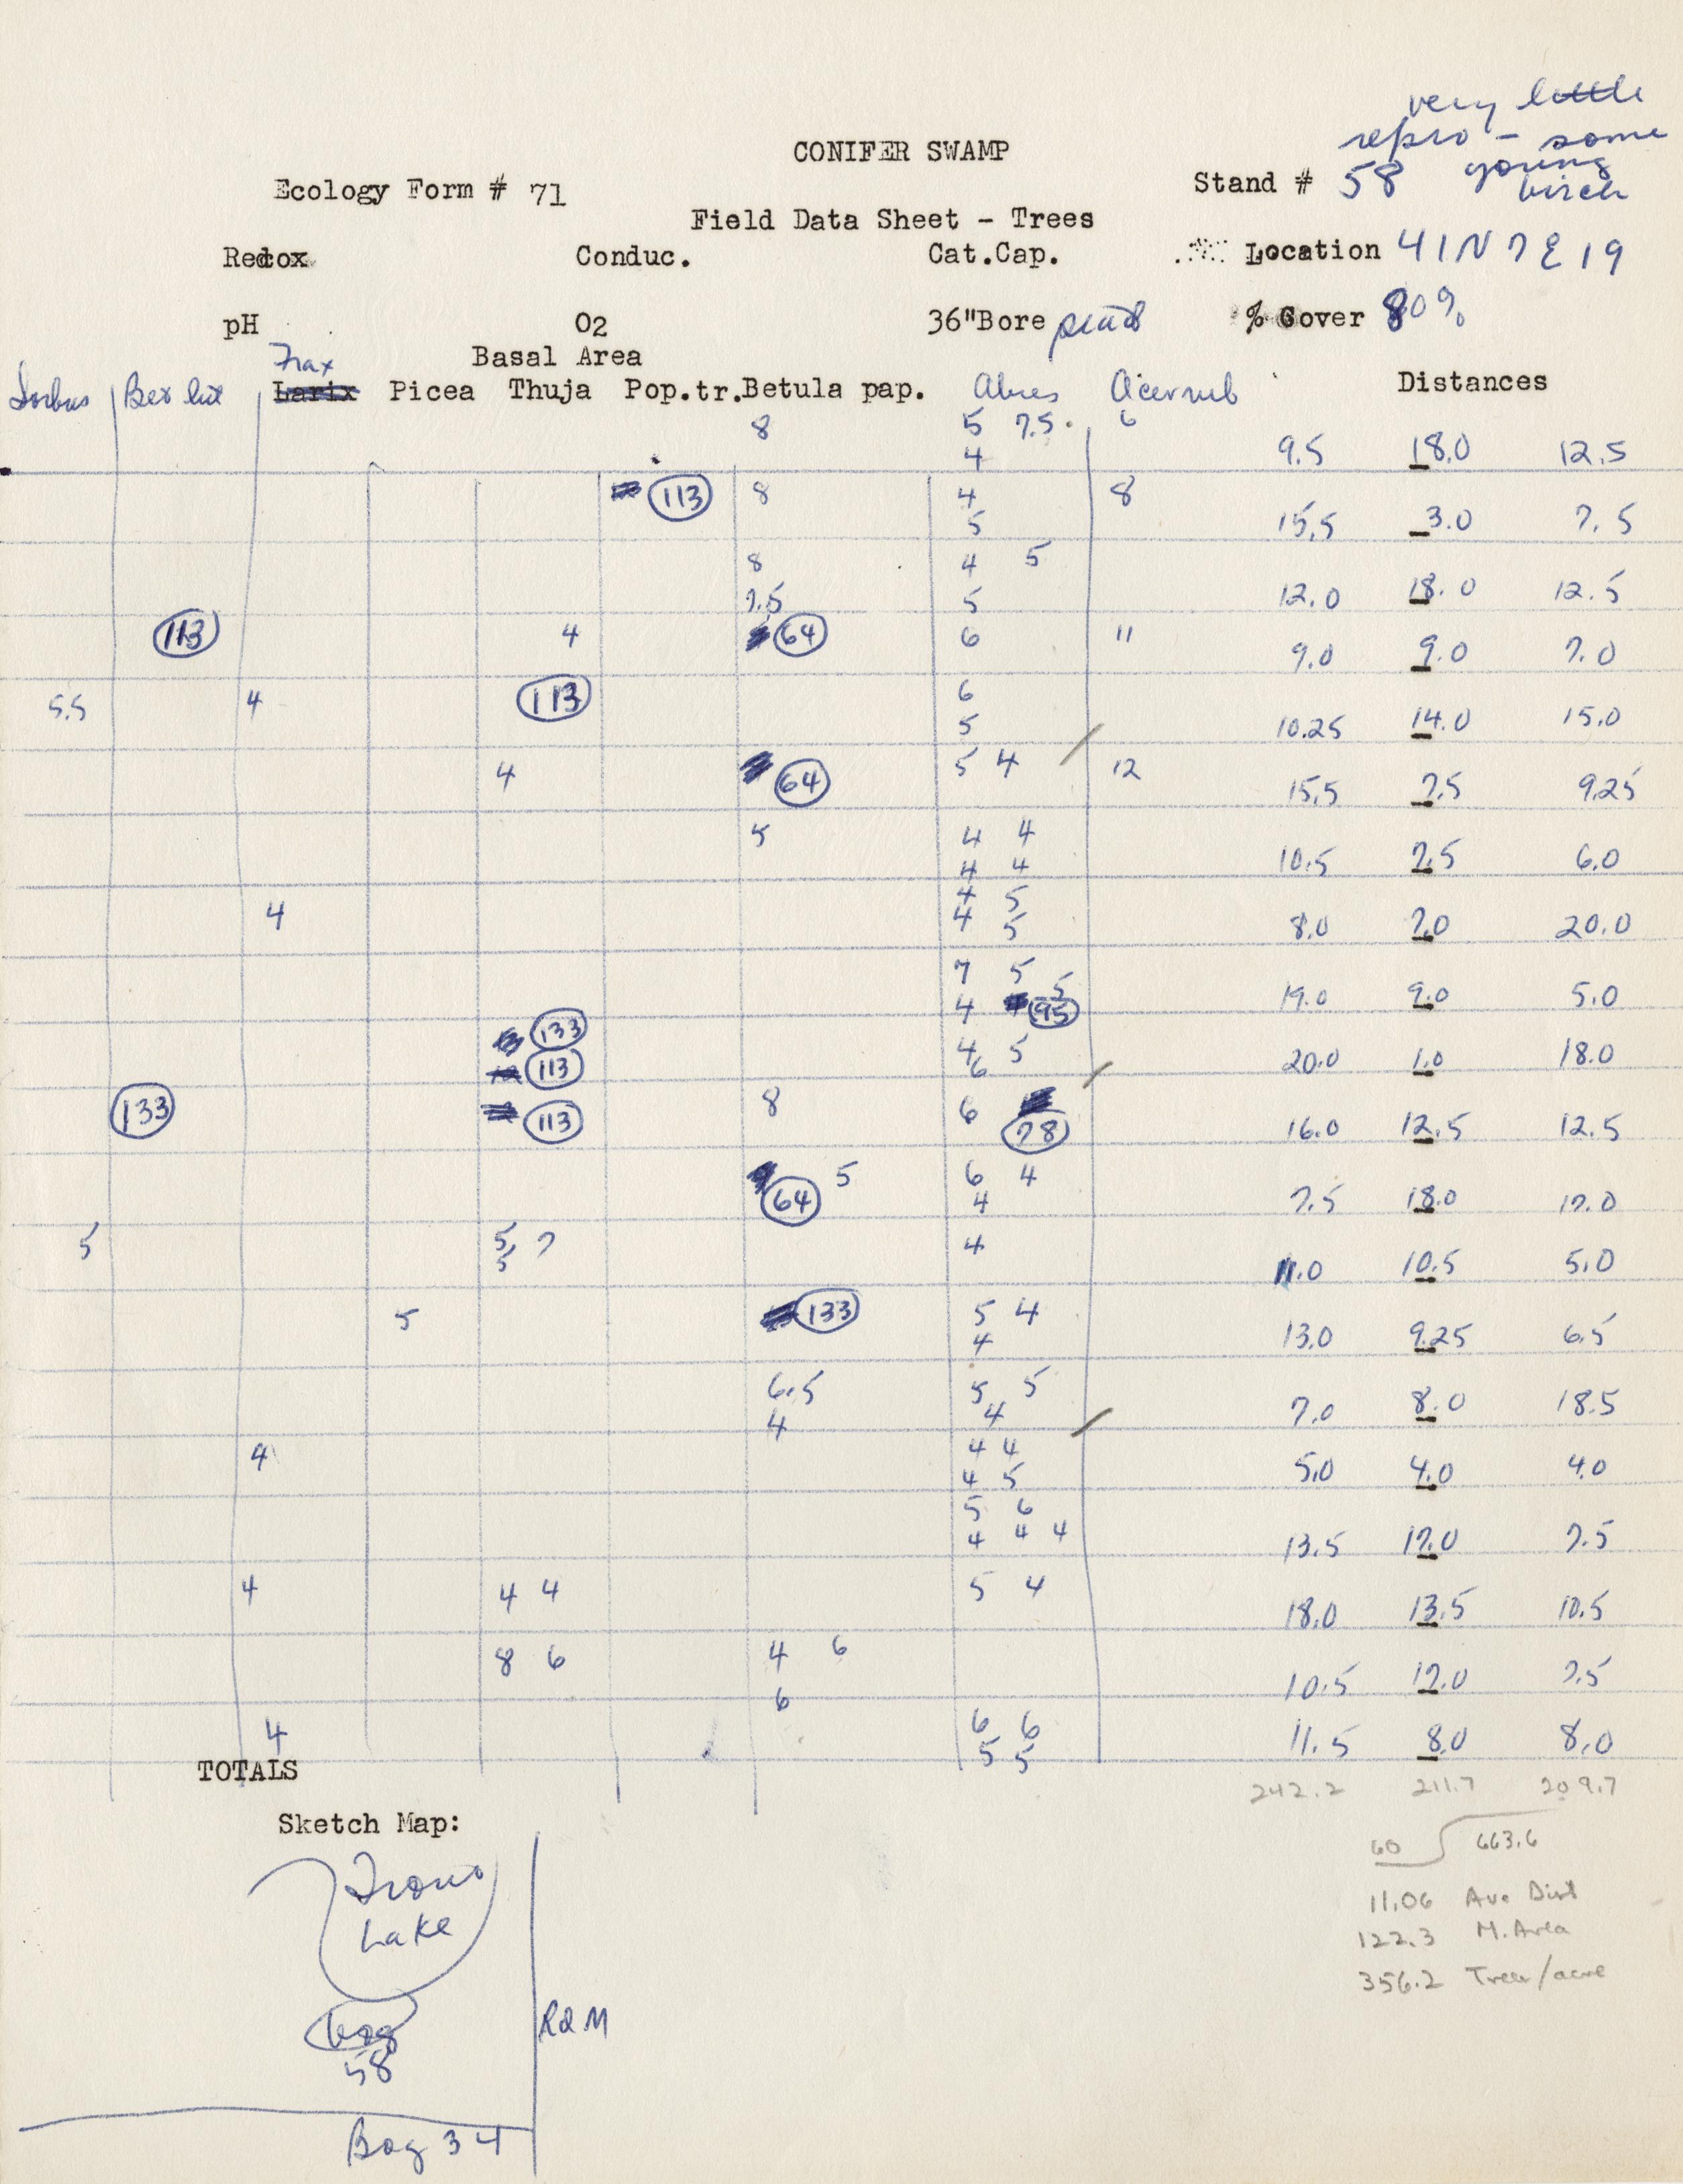 very little
repro - some
CONIFER SWAMP
Ecology Form # 71 Stand # 58 young
birch
Field Data Sheet - Trees
Redox Conduc. Cat.Cap. Location 41N 7E 19
pH O2 36"Bore peat % Cover 80%
Frax Basal Area
Sorbus Bet lut Larix Picea Thuja Pop.tr. Betula pap. Abies Acer rub Distances
8 5 7.5 6
4 9.5 18.0 12.5
113 8 4 8
5 15.5 3.0 7.5
8 4 5
7.5 5 12.0 18.0 12.5
113 4 64 6 11
9.0 9.0 7.0
5.5 4 113 6
5 10.25 14.0 15.0
4 64 5 4 12
15.5 7.5 9.25
5 4 4
4 4 10.5 7.5 6.0
4 5
4 4 5 8.0 7.0 20.0
7 5 5
4 95 19.0 9.0 5.0
133 4 5
113 6 20.0 1.0 18.0
133 113 8 6 78
16.0 12.5 12.5
64 5 6 4
4 7.5 18.0 17.0
5 5 7 4
5 11.0 10.5 5.0
5 133 5 4
4 13.0 9.25 6.5
6.5 5 5
4 4 7.0 8.0 18.5
4 4 4
4 5 5.0 4.0 4.0
5 6
4 4 4 13.5 17.0 7.5
4 4 4 5 4
18.0 13.5 10.5
8 6 4 6
6 10.5 17.0 7.5
4 6 6
5 5 11.5 8.0 8.0
TOTALS 242.2 211.7 209.7
Sketch Map: 60 663.6
Lake 11.06 Ave Dist
122.3 M. Area
356.2 Trees/acre
bog R2M
58
Bog 34